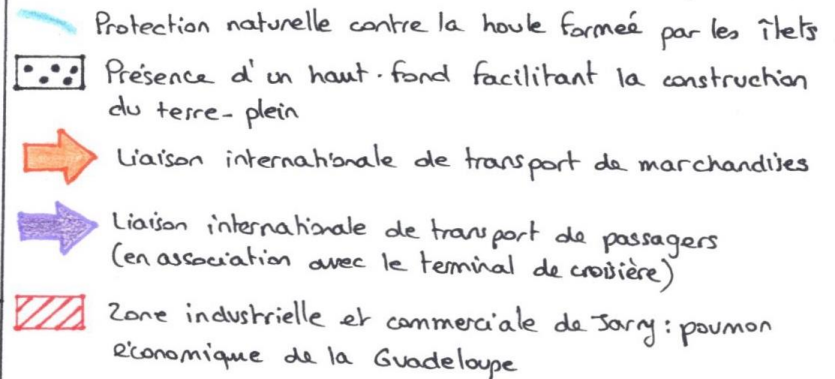 Protection naturelle contre la houle formeé par les îlets
Présence d'un haut-fond facilitant la construction
du terre-plein
Liaison internationale de transport de marchandises
Liaison internationale de transport de passagers
(en association avec le terminal de croisière)
Zone industrielle et commerciale de Jarry : poumon
économique de la Guadeloupe